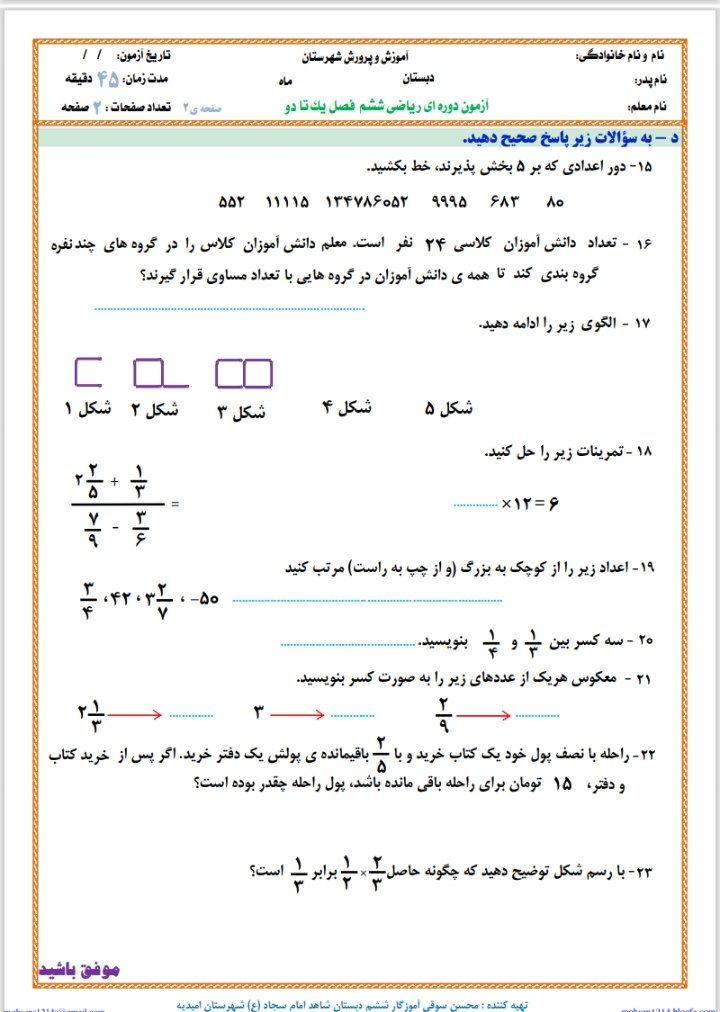 نام و نام خانوادگی: آموزش و پرورش شهرستان تاریخ آزمون: / /
نام پدر: دبستان ماه مدت زمان: ۴۵ دقیقه
نام معلم: آزمون دوره ای ریاضی ششم فصل یك تا دو صفحه ی ۲ تعداد صفحات : ۲ صفحه
د – به سؤالات زیر پاسخ صحیح دهید.
۱۵- دور اعدادی که بر ۵ بخش پذیرند، خط بکشید.
۸۰ ۶۸۳ ۹۹۹۵ ۱۳۴۷۸۶۰۵۲ ۱۱۱۱۵ ۵۵۲
۱۶ - تعداد دانش آموزان کلاسی ۲۴ نفر است. معلم دانش آموزان کلاس را در گروه های چند نفره
گروه بندی کند تا همه ی دانش آموزان در گروه هایی با تعداد مساوی قرار گیرند؟
۱۷ - الگوی زیر را ادامه دهید.
شکل ۱ شکل ۲ شکل ۳ شکل ۴ شکل ۵
۱۸ - تمرینات زیر را حل کنید.
............ ×۱۲ = ۶
(۲ ۲/۵ + ۱/۳) / (۷/۹ - ۳/۶) =
۱۹- اعداد زیر را از کوچک به بزرگ (و از چپ به راست) مرتب کنید
۳/۴ ، ۴۲ ، ۳ ۲/۷ ، -۵۰ ............
۲۰ - سه کسر بین ۱/۳ و ۱/۴ بنویسید. ............
۲۱ - معکوس هریک از عددهای زیر را به صورت کسر بنویسید.
۲ ۱/۳ → ............ ۳ → ............ ۲/۹ → ............
۲۲- راحله با نصف پول خود یک کتاب خرید و با ۲/۵ باقیمانده ی پولش یک دفتر خرید. اگر پس از خرید کتاب
و دفتر، ۱۵ تومان برای راحله باقی مانده باشد، پول راحله چقدر بوده است؟
۲۳- با رسم شکل توضیح دهید که چگونه حاصل ۲/۳ × ۱/۲ برابر ۱/۳ است؟
موفق باشید
تهیه کننده : محسن سوقی آموزگار ششم دبستان شاهد امام سجاد (ع) شهرستان امیدیه